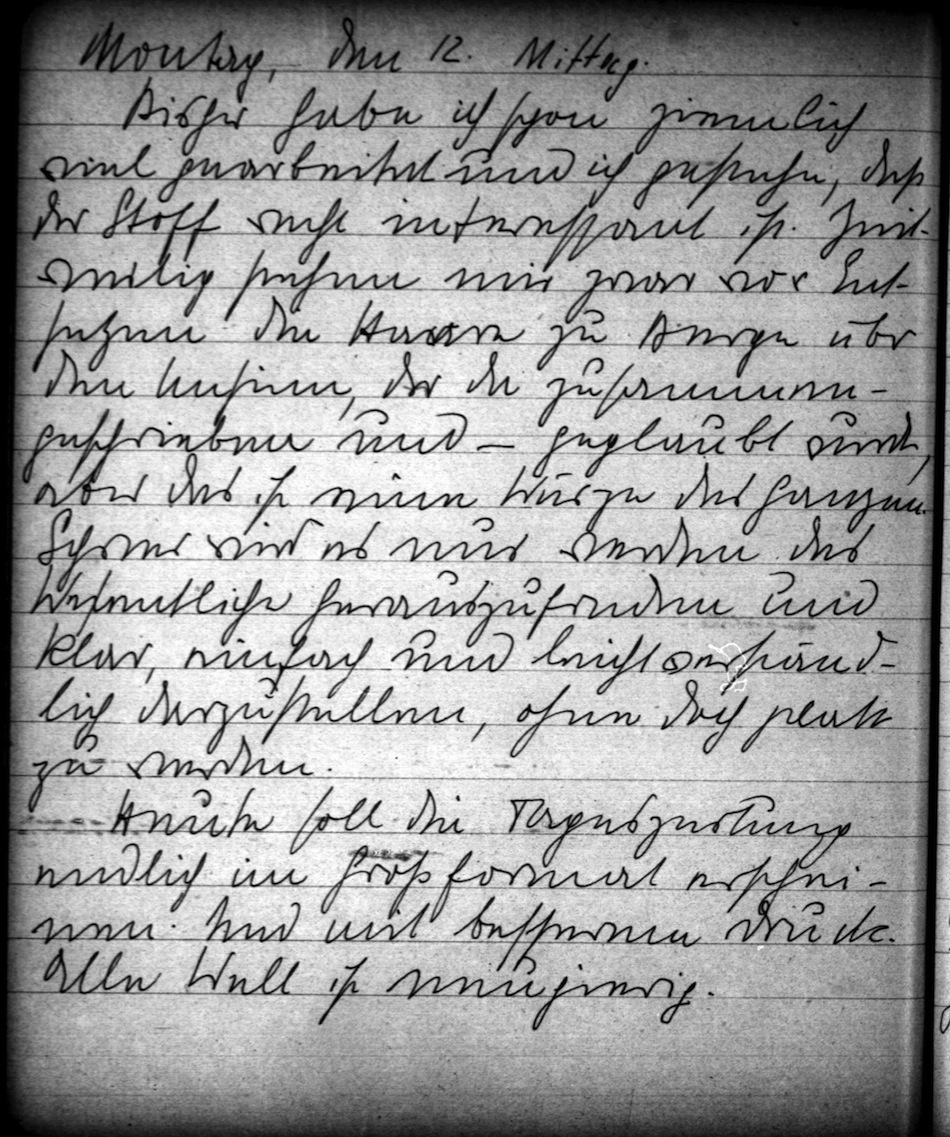 Montag, den 12. Mittag.
Bisher habe ich schon ziemlich
viel gearbeitet und ich gestehe, daß
der Stoff recht interessant ist. Zeit-
weilig stehen mir zwar vor Ent-
setzen die Haare zu Berge über
den Unsinn, der da zusammen-
geschrieben und – geglaubt wird,
aber das ist eine Würze des Ganzen.
Schwer wird es nur werden das
Wesentliche herauszufinden und
klar, einfach und leicht verständ-
lich darzustellen, ohne doch platt
zu werden.
Heute soll die Tageszeitung
endlich im Großformat erschei-
nen. Und mit besserem Druck.
Alle Welt ist neugierig.